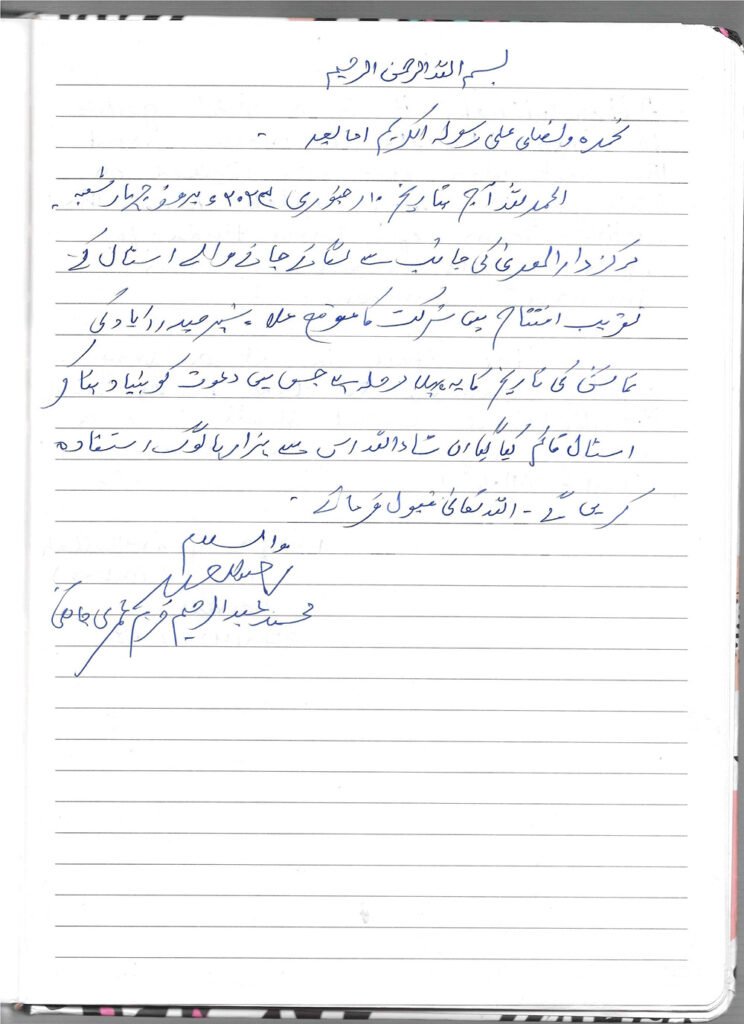 بسم اللہ الرحمن الرحیم
نحمدہ ونصلی علی رسولہ الکریم اما بعد -
الحمد للہ آج بتاریخ ۱۰ر جنوری ۲۰۲۴ء بروز چہار شعبہ
مرکز دار الھدیٰ کی جانب سے لگائے جانے والے اسٹال کے
تقریب افتتاح میں شرکت کا موقع ملا۔ شہر حیدرآباد کی
نمائش کی تاریخ کا یہ پہلا مرحلہ ہے جس میں دعوت کو بنیاد بناکر
اسٹال قائم کیا گیا ان شاء اللہ اس سے ہزارہا لوگ استفادہ
کریں گے - اللہ تعالیٰ قبول فرمائے -
والسلام
محمد عبد الرحیم خرم عمری جامعی